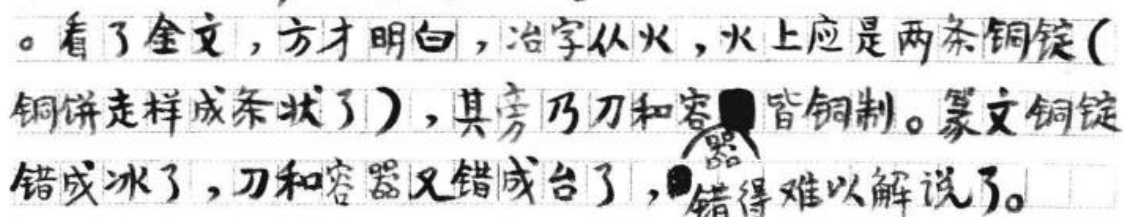 。看了金文，方才明白，冶字从火，火上应是两条铜锭（
铜饼走样成条状了），其旁乃刀和容器皆铜制。篆文铜锭
错成冰了，刀和容器又错成台了，错得难以解说了。